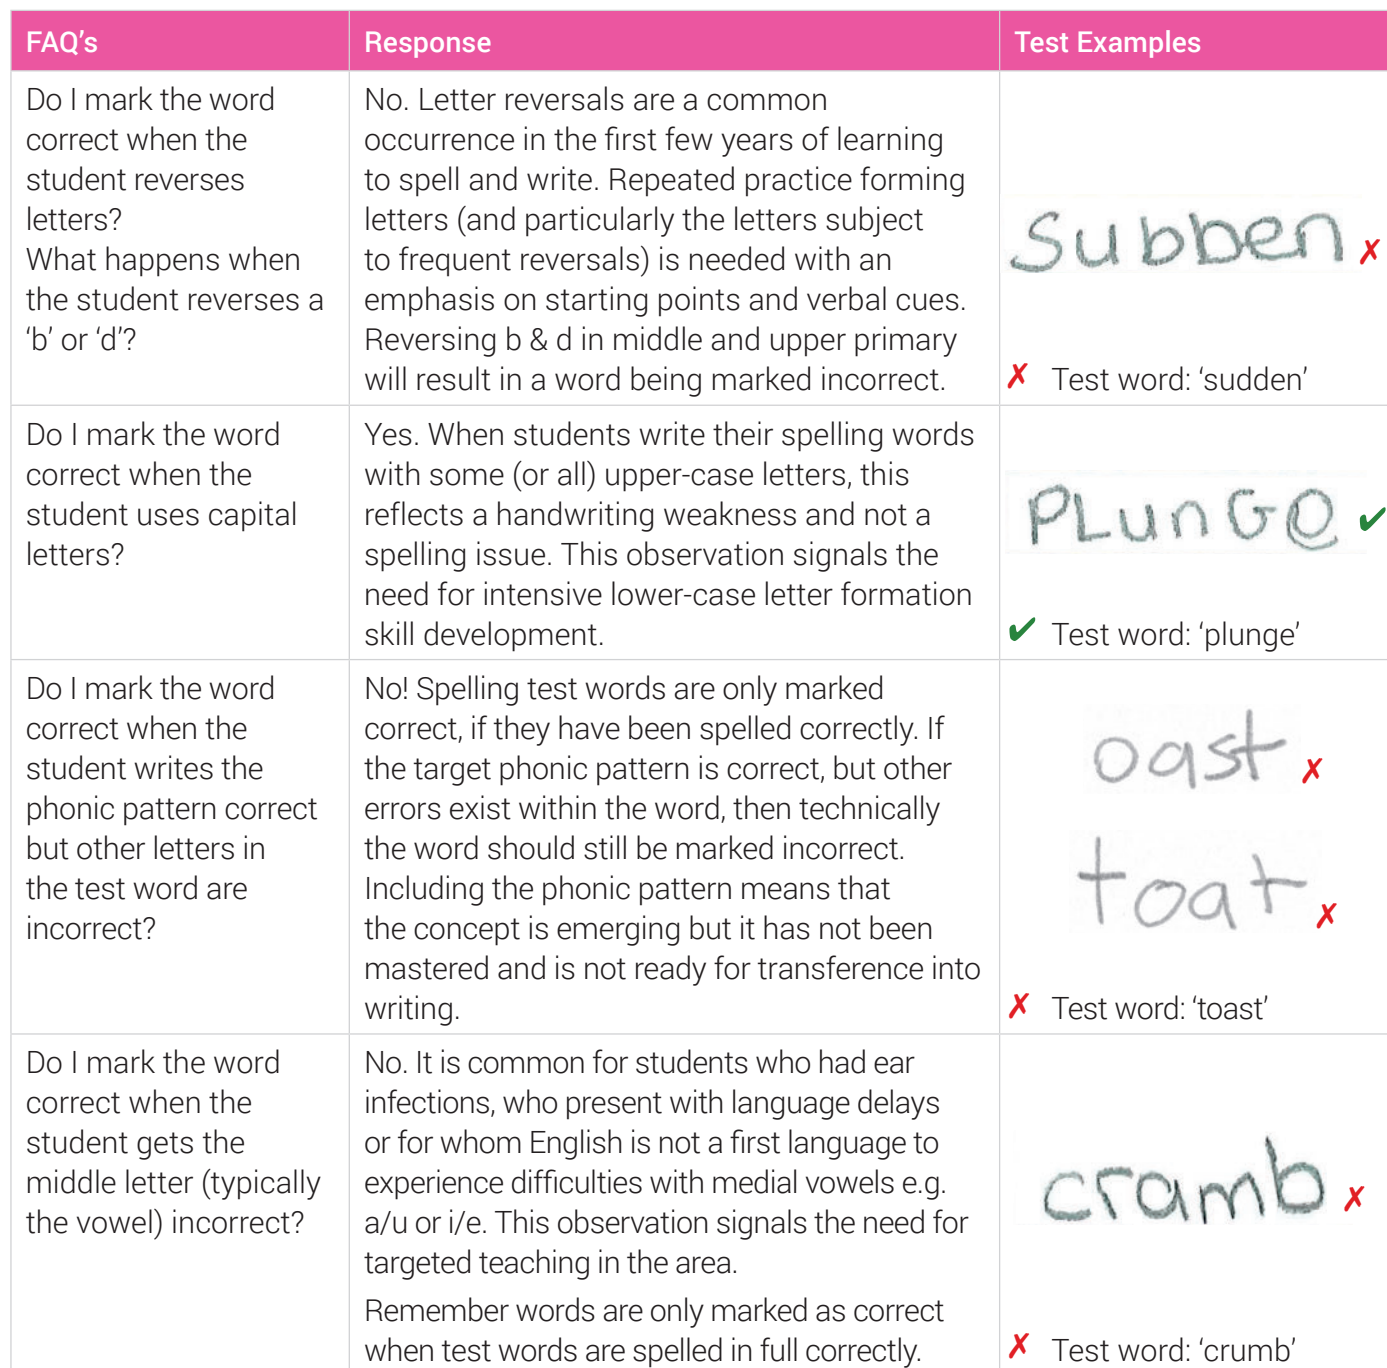 FAQ's
Response
Test Examples
Do I mark the word
correct when the
student reverses
letters?
What happens when
the student reverses a
'b' or 'd'?
No. Letter reversals are a common
occurrence in the first few years of learning
to spell and write. Repeated practice forming
letters (and particularly the letters subject
to frequent reversals) is needed with an
emphasis on starting points and verbal cues.
Reversing b & d in middle and upper primary
will result in a word being marked incorrect.
Subben ✗
✗ Test word: 'sudden'
Do I mark the word
correct when the
student uses capital
letters?
Yes. When students write their spelling words
with some (or all) upper-case letters, this
reflects a handwriting weakness and not a
spelling issue. This observation signals the
need for intensive lower-case letter formation
skill development.
PLunGe ✔
✔ Test word: 'plunge'
Do I mark the word
correct when the
student writes the
phonic pattern correct
but other letters in
the test word are
incorrect?
No! Spelling test words are only marked
correct, if they have been spelled correctly. If
the target phonic pattern is correct, but other
errors exist within the word, then technically
the word should still be marked incorrect.
Including the phonic pattern means that
the concept is emerging but it has not been
mastered and is not ready for transference into
writing.
oast ✗
toat ✗
✗ Test word: 'toast'
Do I mark the word
correct when the
student gets the
middle letter (typically
the vowel) incorrect?
No. It is common for students who had ear
infections, who present with language delays
or for whom English is not a first language to
experience difficulties with medial vowels e.g.
a/u or i/e. This observation signals the need for
targeted teaching in the area.
Remember words are only marked as correct
when test words are spelled in full correctly.
cramb ✗
✗ Test word: 'crumb'